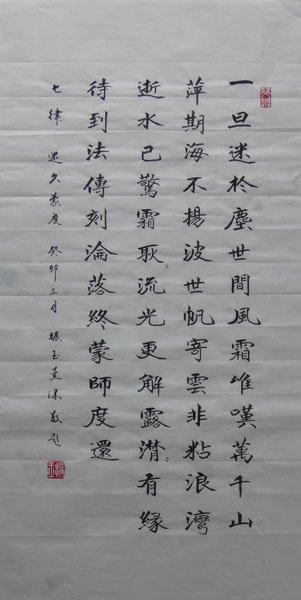 一旦迷於塵世間風霜唯嘆萬千山
萍期海不揚波世帆寄雲非粘浪灣
逝水已驚霜耿〻流光更解露潸〻有緣
待到法傳刻淪落終蒙師度還
七律 迷久蒙度 癸卯三月 玉 沐敬題